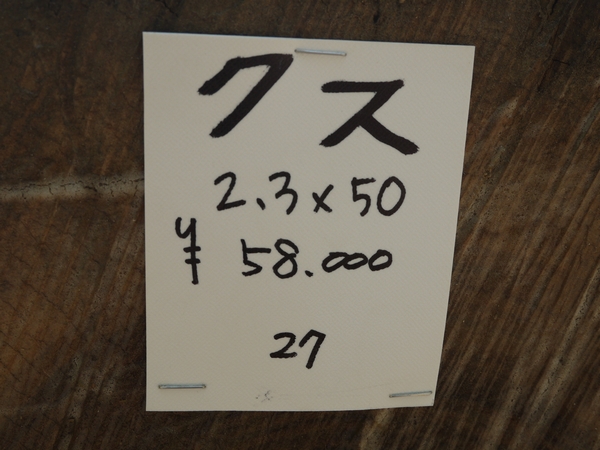 クス
2.3×50
¥ 58.000
27